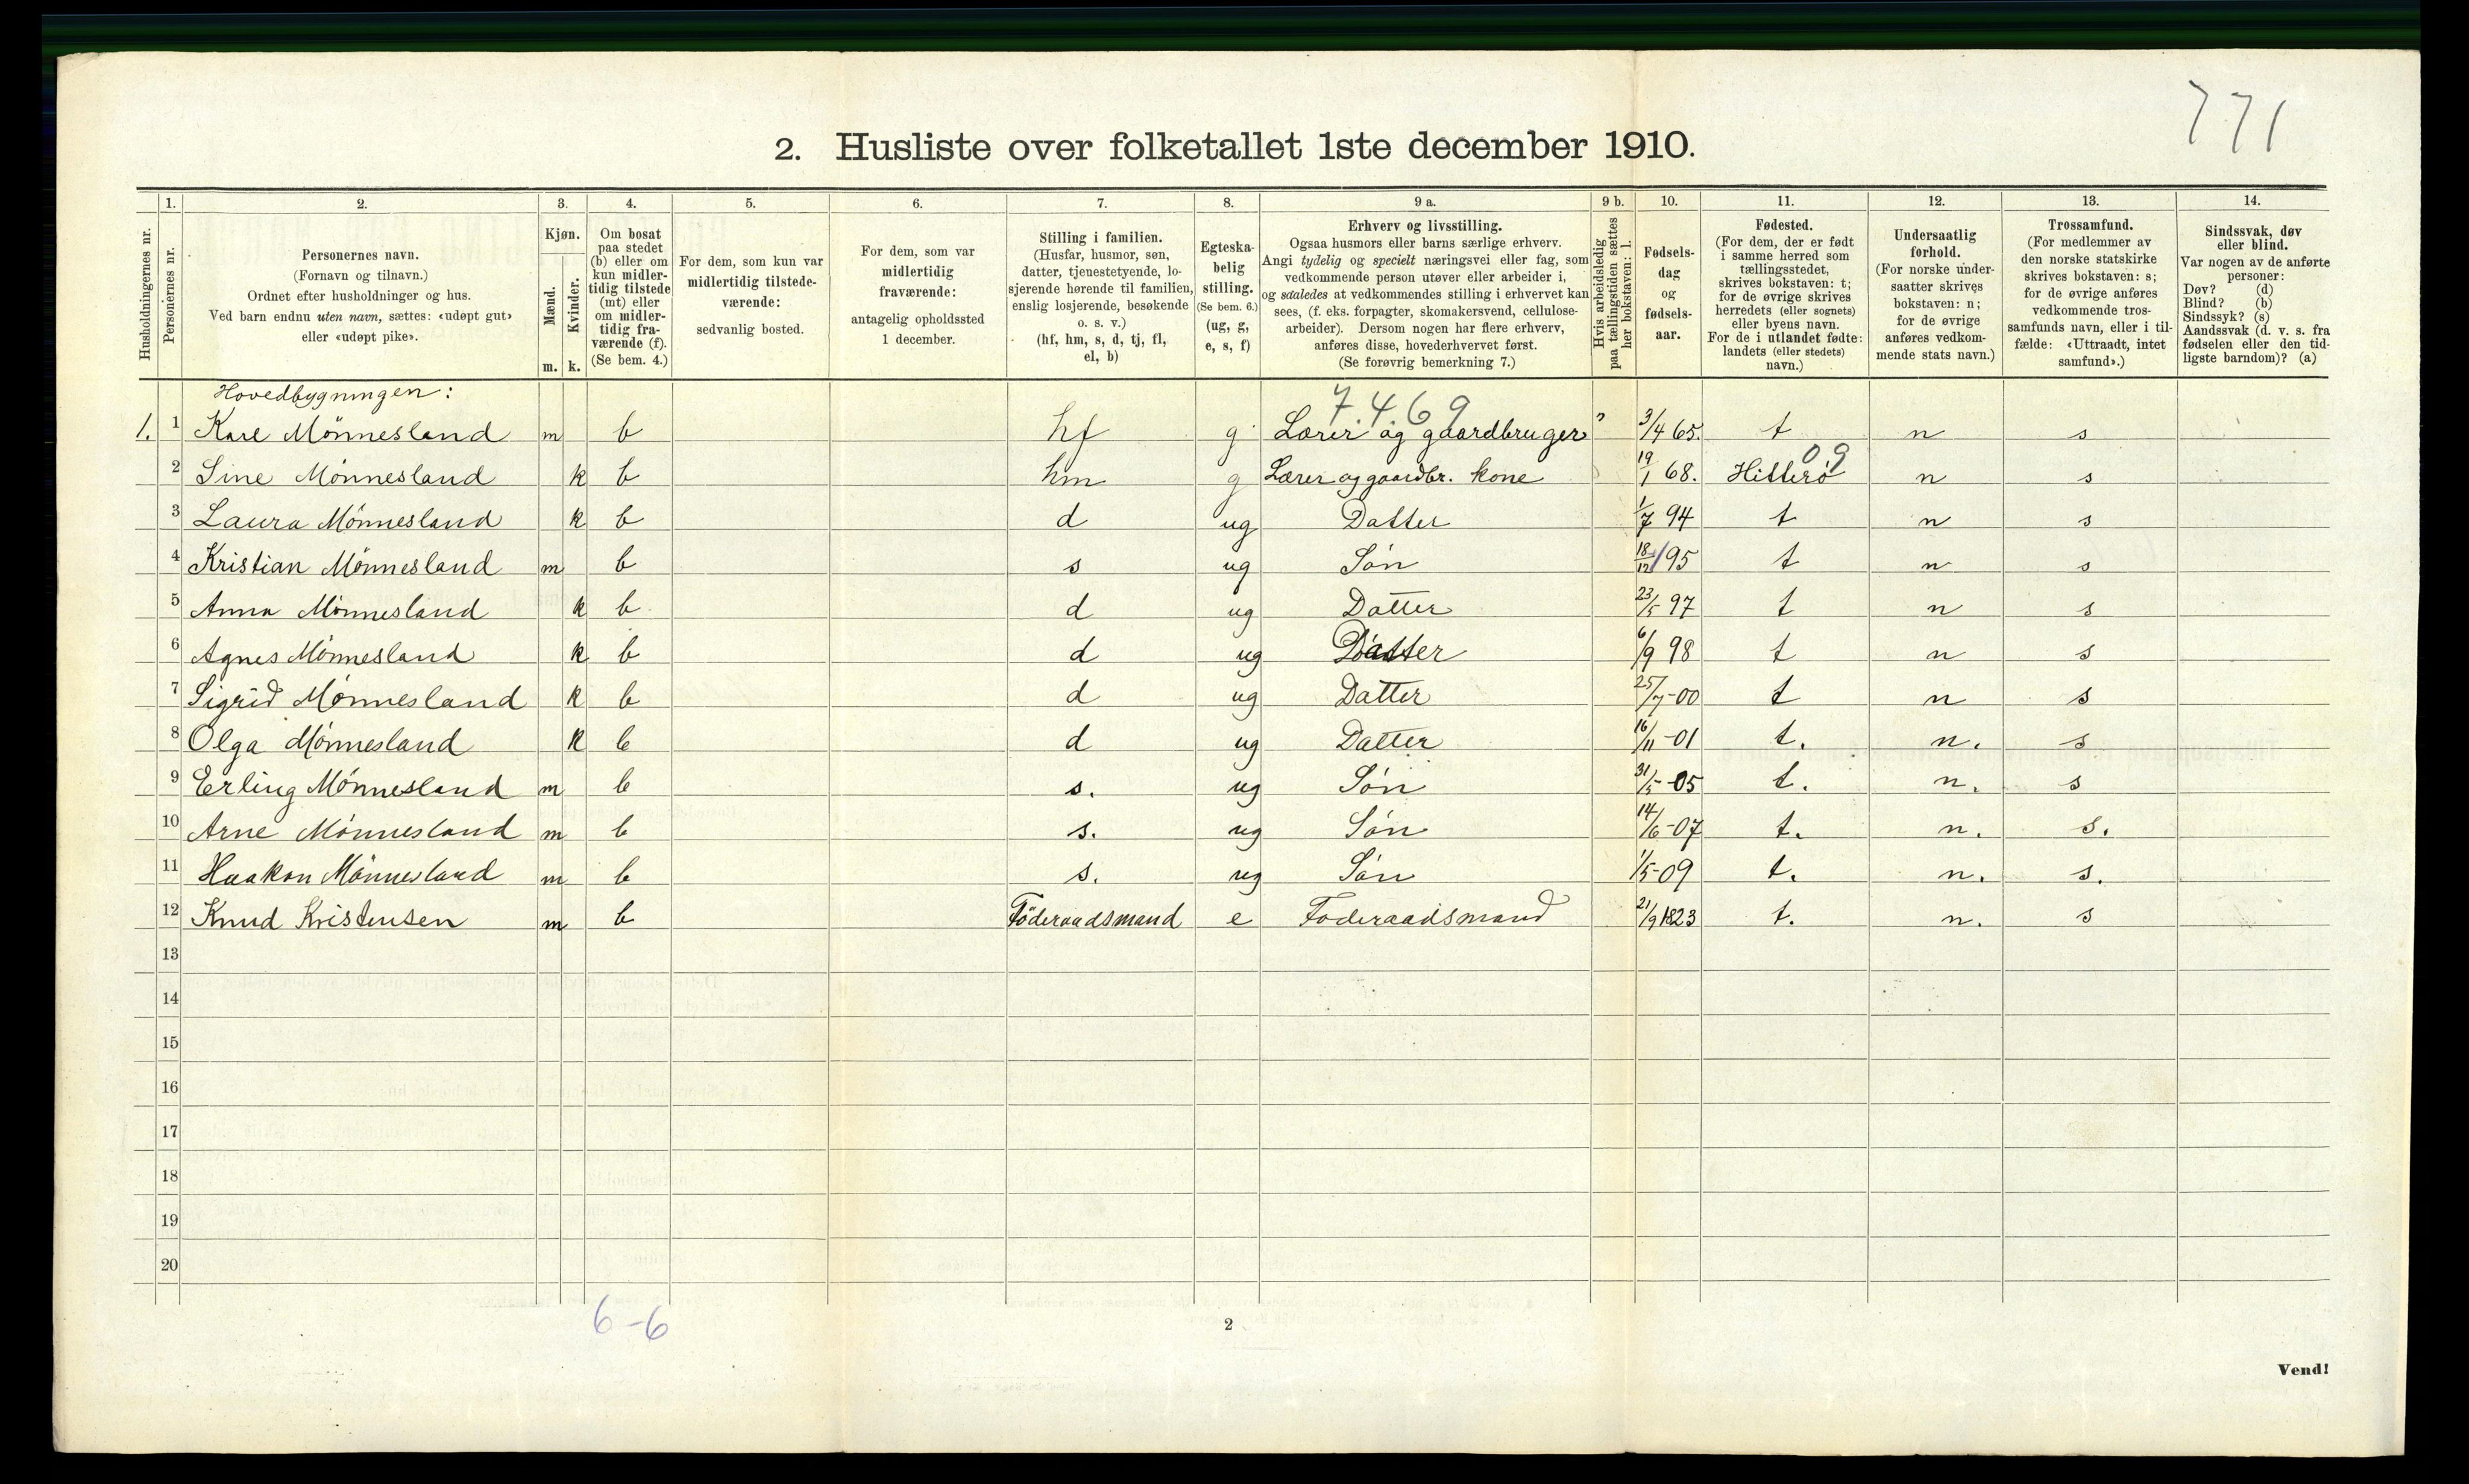 771
2. Husliste over folketallet 1ste december 1910.
Husholdningernes nr.
1.
Personernes nr.
2.
Personernes navn.
(Fornavn og tilnavn.)
Ordnet efter husholdninger og hus.
Ved barn endnu uten navn, sættes: «udøpt gut»
eller «udøpt pike».
3.
Kjøn.
Mænd.
Kvinder.
m. k.
4.
Om bosat
paa stedet
(b) eller om
kun midler-
tidig tilstede
(mt) eller
om midler-
tidig fra-
værende (f).
(Se bem. 4.)
5.
For dem, som kun var
midlertidig tilstede-
værende:
sedvanlig bosted.
6.
For dem, som var
midlertidig
fraværende:
antagelig opholdssted
1 december.
7.
Stilling i familien.
(Husfar, husmor, søn,
datter, tjenestetyende, lo-
sjerende hørende til familien,
enslig losjerende, besøkende
o. s. v.)
(hf, hm, s, d, tj, fl,
el, b)
8.
Egteska-
belig
stilling.
(Se bem. 6.)
(ug, g,
e, s, f)
9 a.
Erhverv og livsstilling.
Ogsaa husmors eller barns særlige erhverv.
Angi tydelig og specielt næringsvei eller fag, som
vedkommende person utøver eller arbeider i,
og saaledes at vedkommendes stilling i erhvervet kan
sees, (f. eks. forpagter, skomakersvend, cellulose-
arbeider). Dersom nogen har flere erhverv,
anføres disse, hovederhvervet først.
(Se forøvrig bemerkning 7.)
9 b.
Hvis arbeidsledig
paa tællingstiden sættes
her bokstaven: l.
10.
Fødsels-
dag
og
fødsels-
aar.
11.
Fødested.
(For dem, der er født
i samme herred som
tællingsstedet,
skrives bokstaven: t;
for de øvrige skrives
herredets (eller sognets)
eller byens navn.
For de i utlandet fødte:
landets (eller stedets)
navn.)
12.
Undersaatlig
forhold.
(For norske under-
saatter skrives
bokstaven: n;
for de øvrige
anføres vedkom-
mende stats navn.)
13.
Trossamfund.
(For medlemmer av
den norske statskirke
skrives bokstaven: s;
for de øvrige anføres
vedkommende tros-
samfunds navn, eller i til-
fælde: «Uttraadt, intet
samfund».)
14.
Sindssvak, døv
eller blind.
Var nogen av de anførte
personer:
Døv? (d)
Blind? (b)
Sindssyk? (s)
Aandssvak (d. v. s. fra
fødselen eller den tid-
ligste barndom)? (a)
Hovedbygningen:
7.469
1. 1 Karl Mönnesland m b hf g Lærer og gaardbruger 3/4 65. t n s
09
2 Sine Mönnesland k b hm g Lærer og gaardbr. kone 19/1 68. Hitterö n s
3 Laura Mönnesland k b d ug Datter 1/7 94 t n s
4 Kristian Mönnesland m b s ug Sön 18/12 95 t n s
5 Anna Mönnesland k b d ug Datter 23/5 97 t n s
6 Agnes Mönnesland k b d ug Datter 6/9 98 t n s
7 Sigrid Mönnesland k b d ug Datter 25/7-00 t n s
8 Olga Mönnesland k b d ug Datter 16/11-01 t. n. s
9 Erling Mönnesland m b s. ug Sön 31/5-05 t. n. s
10 Arne Mönnesland m b s. ug Sön 14/6-07 t. n. s.
11 Haakon Mönnesland m b s. ug Sön 1/5-09 t. n. s.
12 Knud Kristensen m b Föderaadsmand e Föderaadsmand 21/9 1823 t. n. s
13
14
15
16
17
18
19
20
6-6
2
Vend!